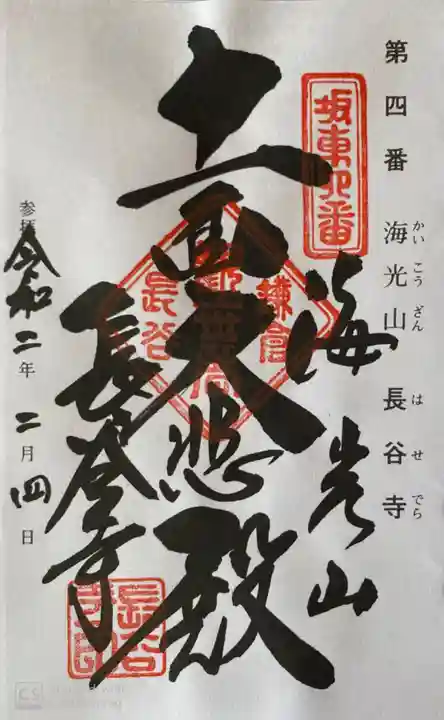 第四番 海光山 長谷寺
かいこうざん はせでら
坂東四番
海光山
十一面大悲殿
鎌倉
長谷
長谷寺
参拝
令和二年二月四日
長谷
寺印
CS